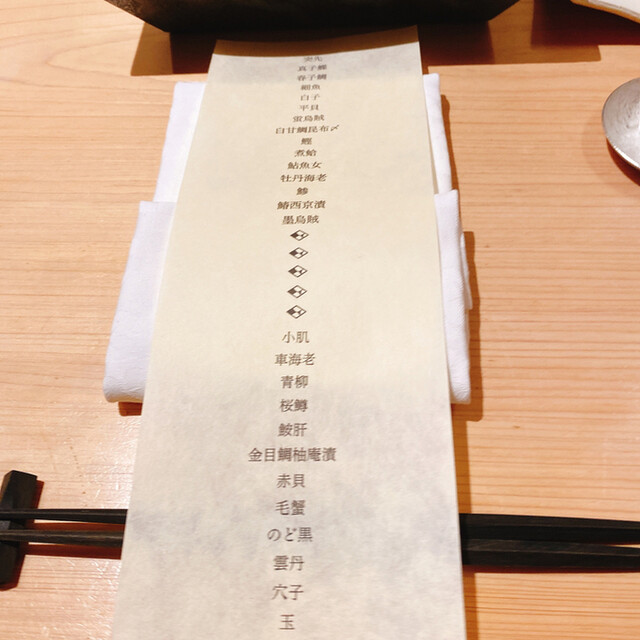 真子鰈
春子鯛
細魚
白子
平貝
蛍烏賊
白甘鯛昆布〆
鰹
煮蛤
鮎魚女
牡丹海老
鯵
鰆西京漬
墨烏賊
小肌
車海老
青柳
桜鱒
鮟肝
金目鯛柚庵漬
赤貝
毛蟹
のど黒
雲丹
穴子
玉